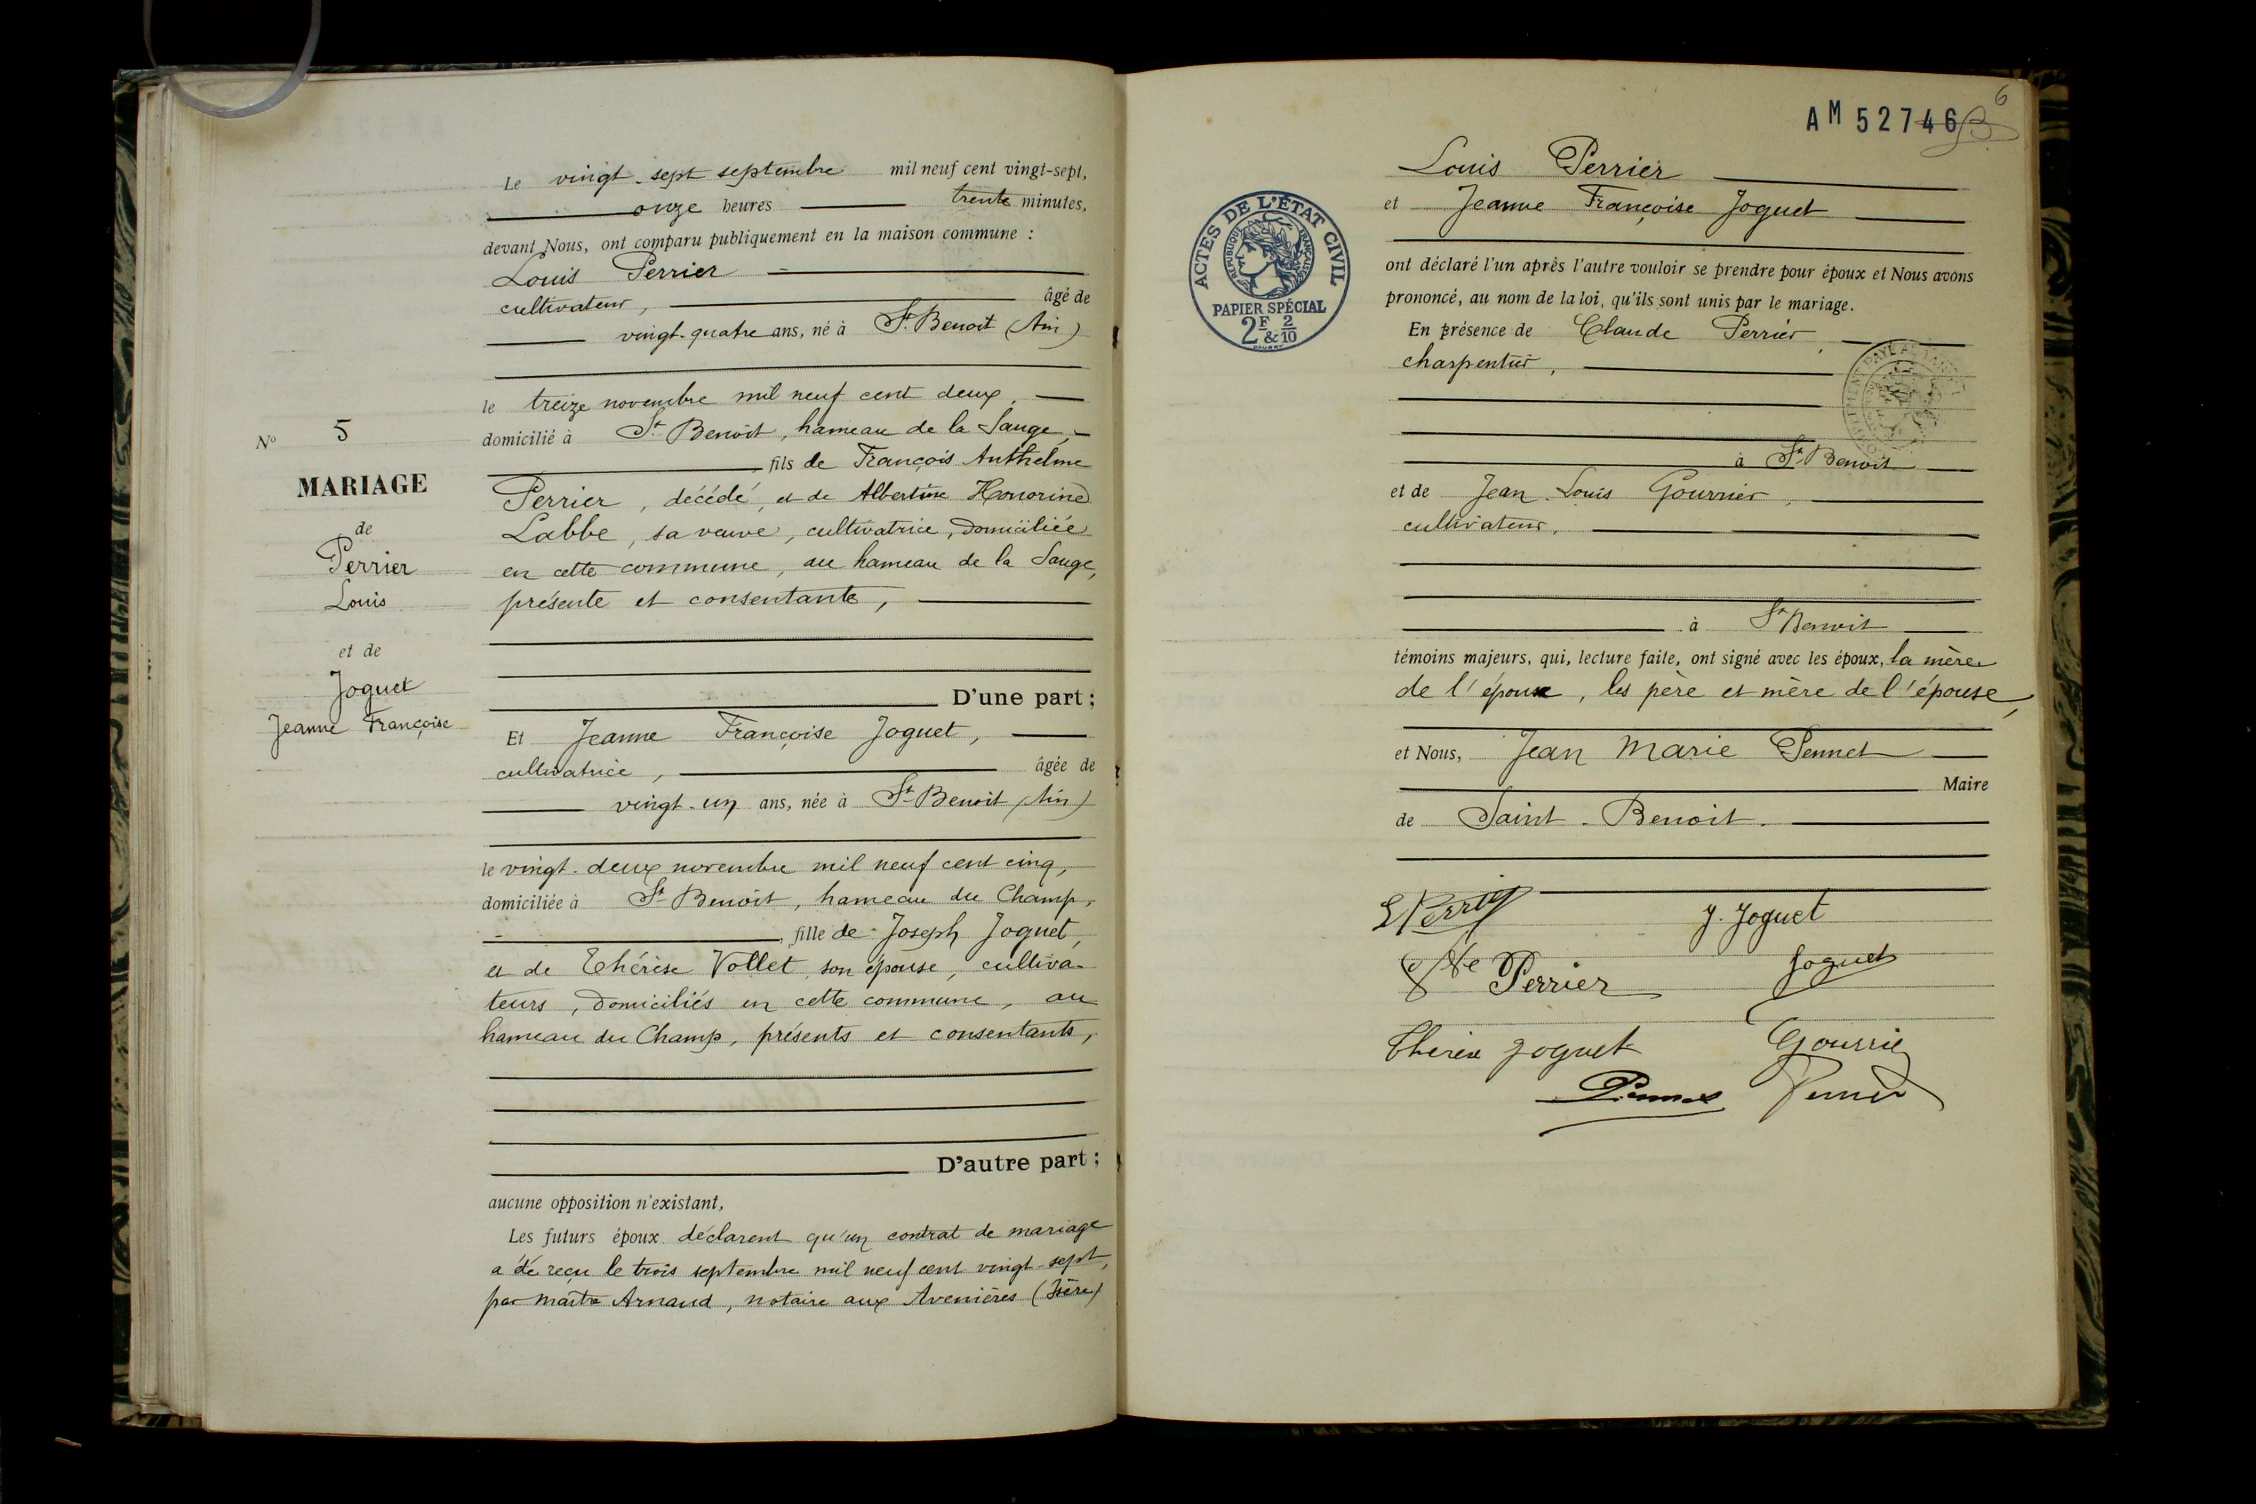 Le vingt-sept septembre mil neuf cent vingt-sept,
onze heures trente minutes,
devant Nous, ont comparu publiquement en la maison commune :
Louis Perrier
cultivateur, âgé de
vingt-quatre ans, né à St Benoit (Ain)
le treize novembre mil neuf cent deux,
domicilié à St Benoit, hameau de la Sauge,
fils de François Anthelme
Perrier, décédé, et de Albertine Honorine
Labbe, sa veuve, cultivatrice, domiciliée
en cette commune, au hameau de la Sauge,
présente et consentante,
D'une part ;
Et Jeanne Françoise Joguet,
cultivatrice, âgée de
vingt-un ans, née à St Benoit (Ain)
le vingt-deux novembre mil neuf cent cinq,
domiciliée à St Benoit, hameau du Champ,
fille de Joseph Joguet,
et de Thérèse Vollet, son épouse, cultiva-
teurs, domiciliés en cette commune, au
hameau du Champ, présents et consentants,
D'autre part ;
aucune opposition n'existant,
Les futurs époux déclarent qu'un contrat de mariage
a été reçu le trois septembre mil neuf cent vingt-sept,
par Maître Arnaud, notaire aux Avenières (Isère)
No 5
MARIAGE
de
Perrier
Louis
et de
Joguet
Jeanne Françoise
6
AM 52746
Louis Perrier
et Jeanne Françoise Joguet
ACTES DE L'ÉTAT CIVIL
RÉPUBLIQUE FRANÇAISE
PAPIER SPÉCIAL
2F & 2/10
ont déclaré l'un après l'autre vouloir se prendre pour époux et Nous avons
prononcé, au nom de la loi, qu'ils sont unis par le mariage.
En présence de Claude Perrier,
charpentier,
à St Benoit
et de Jean Louis Gourrier,
cultivateur,
à St Benoit
témoins majeurs, qui, lecture faite, ont signé avec les époux, la mère
de l'époux, les père et mère de l'épouse,
et Nous, Jean Marie Pennet
Maire
de Saint-Benoit.
Perrier
J. Joguet
Vve Perrier
Joguet
Joguet
Gourrier